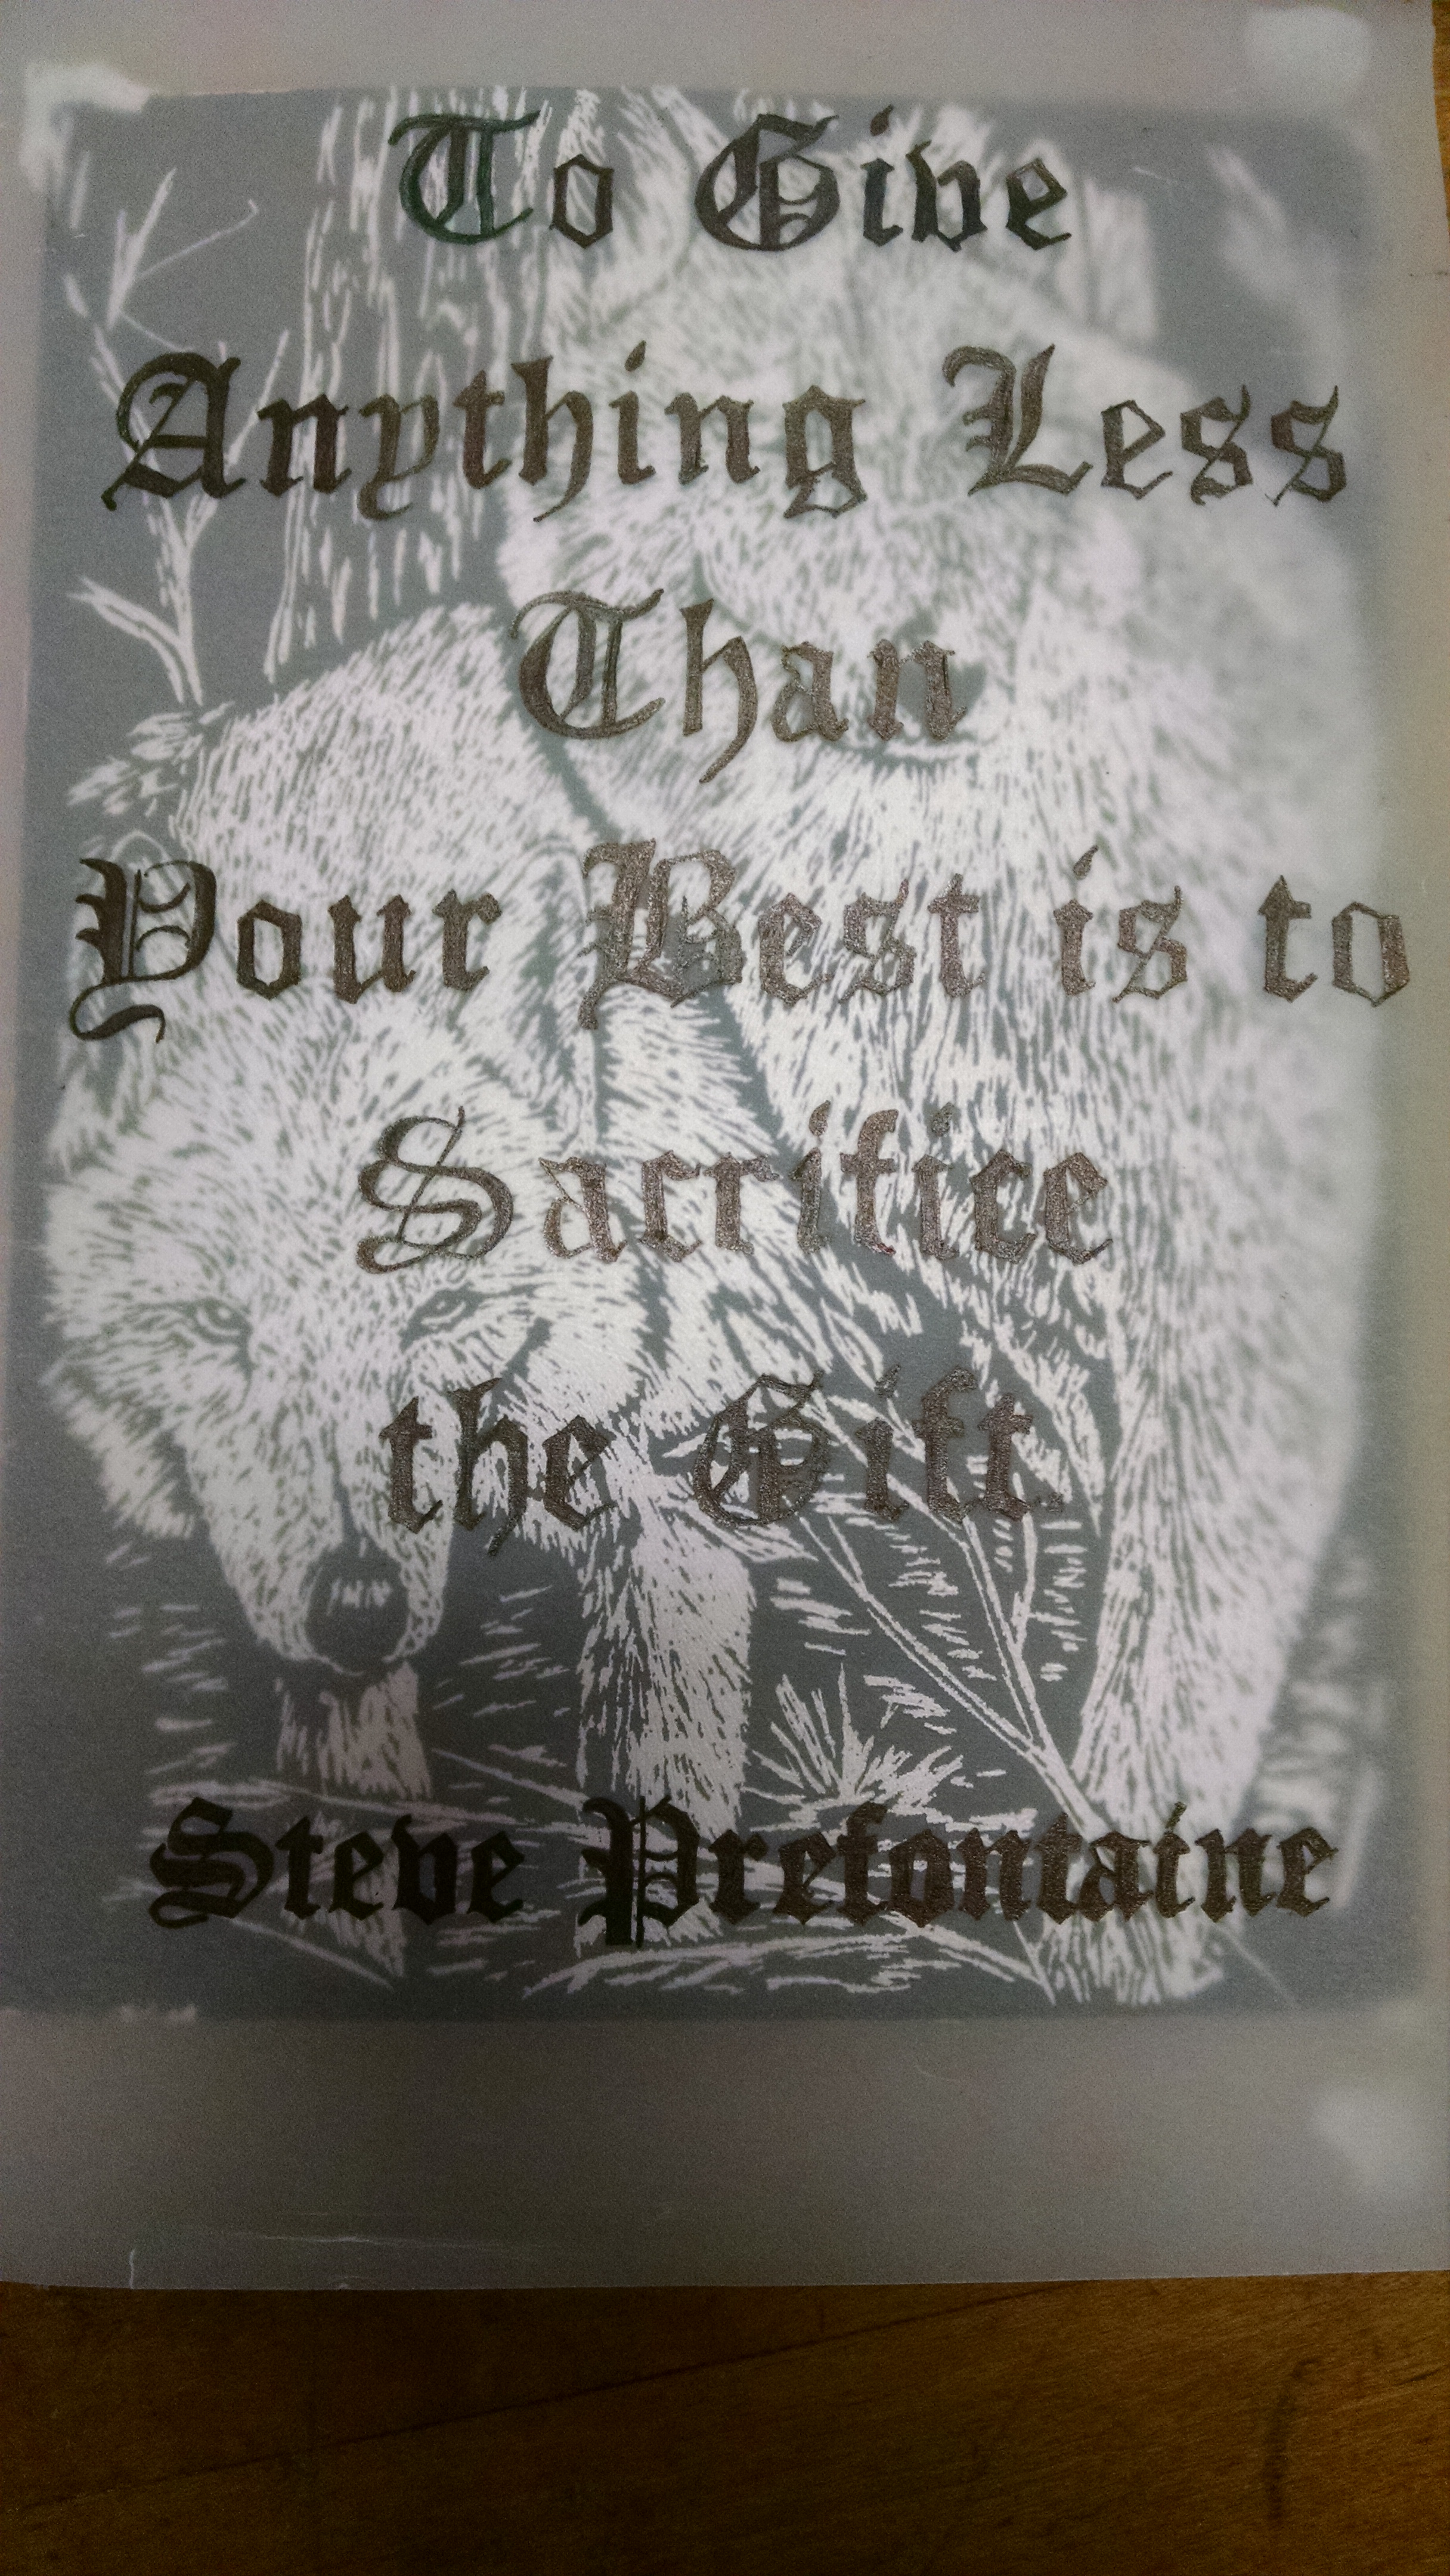 To Give
Anything Less
Than
Your Best is to
Sacrifice
the Gift.
Steve Prefontaine